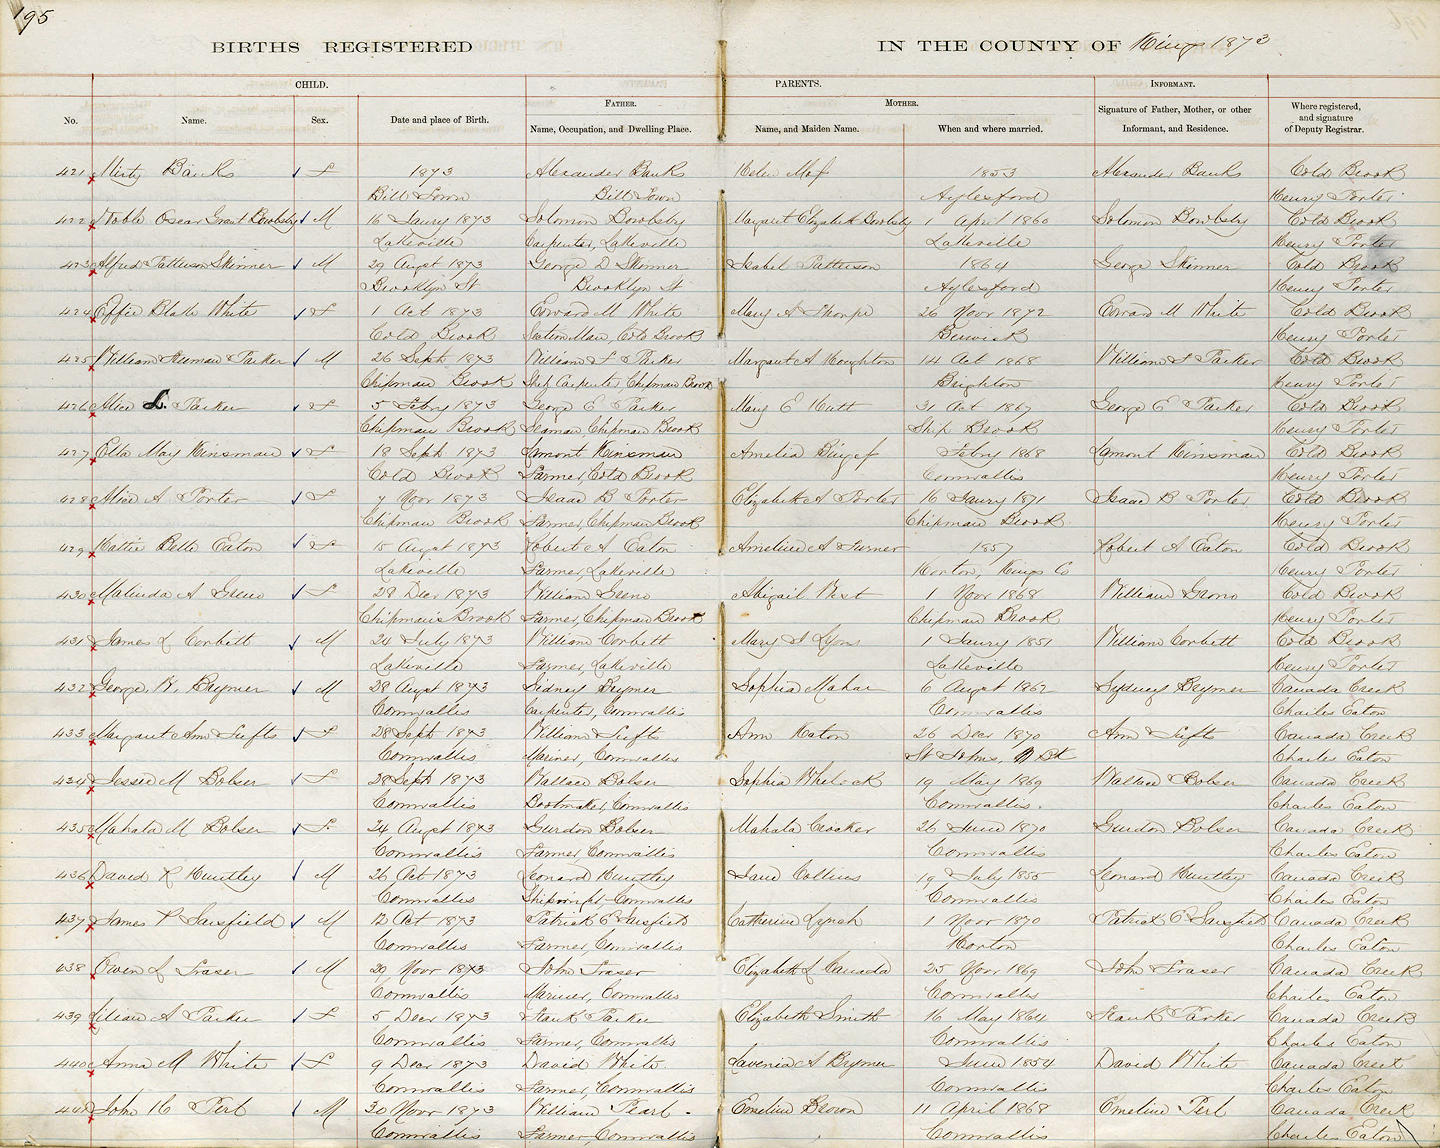 195
BIRTHS REGISTERED IN THE COUNTY OF Kings 1873
CHILD. PARENTS. INFORMANT.
No. Name. Sex. Date and place of Birth. FATHER. Name, Occupation, and Dwelling Place. MOTHER. Name, and Maiden Name. When and where married. Signature of Father, Mother, or other Informant, and Residence. Where registered, and signature of Deputy Registrar.
421 Banks F 1873 Alexander Banks Helen 1853 Alexander Banks Cold Brook
Bill Town Bill Town Aylesford Henry Porter
422 Noble Oscar Grant Bowlsby M 16 Jany 1873 Solomon Bowlsby Margaret Elizabeth Bowlsby 1 April 1860 Solomon Bowlsby Cold Brook
Lakeville Carpenter, Lakeville Lakeville Henry Porter
423 Alfred Patterson Skinner M 29 Augst 1873 George D Skinner Isabel Patterson 1864 George Skinner Cold Brook
Brooklyn St Brooklyn St Aylesford Henry Porter
424 Effie Blake White F 1 Oct 1873 Edward M White Mary A Thorpe 26 Novr 1872 Edward M White Cold Brook
Cold Brook Section Man, Cold Brook Berwick Henry Porter
425 William Freeman Parker M 26 Sept 1873 William F Parker Margaret A Houghton 14 Oct 1868 William F Parker Cold Brook
Chipman Brook Ship Carpenter, Chipman Brook Brighton Henry Porter
426 Alice L. Parker F 5 Febry 1873 George E Parker Mary E Hutt 31 Oct 1867 George E Parker Cold Brook
Chipman Brook Seaman, Chipman Brook Ship Brook Henry Porter
427 Etta May Kinsman F 18 Sept 1873 Lamont Kinsman Amelia Febry 1868 Lamont Kinsman Cold Brook
Cold Brook Farmer, Cold Brook Cornwallis Henry Porter
428 Alice A Porter F 7 Novr 1873 Isaac B Porter Elizabeth A Porter 16 Jany 1871 Isaac B Porter Cold Brook
Chipman Brook Farmer, Chipman Brook Chipman Brook Henry Porter
429 Hattie Belle Eaton F 15 Augst 1873 Robert A Eaton Ameline A Turner 1857 Robert A Eaton Cold Brook
Lakeville Farmer, Lakeville Horton, Kings Co Henry Porter
430 Malinda A Greno F 28 Decr 1873 William Greno Abigail West 1 Novr 1868 William Grono Cold Brook
Chipmans Brook Farmer, Chipman Brook Chipman Brook Henry Porter
431 James L Corbett M 24 July 1873 William Corbett Mary J Lyons 1 Jany 1851 William Corbett Cold Brook
Lakeville Farmer, Lakeville Lakeville Henry Porter
432 George W. Brymer M 28 Augst 1873 Sidney Brymer Sophia Mahar 6 Augst 1862 Sydney Brymer Canada Creek
Cornwallis Carpenter, Cornwallis Cornwallis Charles Eaton
433 Margaret Ann Tufts F 28 Sept 1873 William Tufts Ann Eaton 26 Decr 1870 Ann Tufts Canada Creek
Cornwallis Mariner, Cornwallis St Johns, Charles Eaton
434 Jessie M Bolser F 28 Sept 1873 Wallace Bolser Sophia Whelock 19 May 1869 Wallace Bolser Canada Creek
Cornwallis Bootmaker, Cornwallis Cornwallis. Charles Eaton
435 Mahala M Bolser F. 24 Augst 1873 Gurdon Bolser Mahala Croaker 26 June 1870 Gurdon Bolser Canada Creek
Cornwallis Farmer, Cornwallis Cornwallis Charles Eaton
436 David R Huntley M 26 Oct 1873 Leonard Huntley Jane Collins 19 July 1855 Leonard Huntley Canada Creek
Cornwallis Shipwright Cornwallis Cornwallis Charles Eaton
437 James P Sarsfield M 12 Oct 1873 Patrick C Sarsfield Catherine Lynch 1 Novr 1870 Patrick C Sarsfield Canada Creek
Cornwallis Farmer, Cornwallis Horton Charles Eaton
438 Owen L Fraser M 29 Novr 1873 John Fraser Elizabeth L Canada 25 Novr 1869 John Fraser Canada Creek
Cornwallis Mariner, Cornwallis Cornwallis Charles Eaton
439 Lilean A Parker F 5 Decr 1873 Parker Elizabeth Smith 16 May 1864 Parker Canada Creek
Cornwallis Farmer, Cornwallis Cornwallis Charles Eaton
440 Anna M White F 9 Decr 1873 David White Lavenia A Brymer June 1854 David White Canada Creek
Cornwallis Farmer, Cornwallis Cornwallis Charles Eaton
441 John H Perl M 30 Novr 1873 William Pearl Emeline Brown 11 April 1868 Emeline Perl Canada Creek
Cornwallis Farmer Cornwallis Cornwallis Charles Eaton